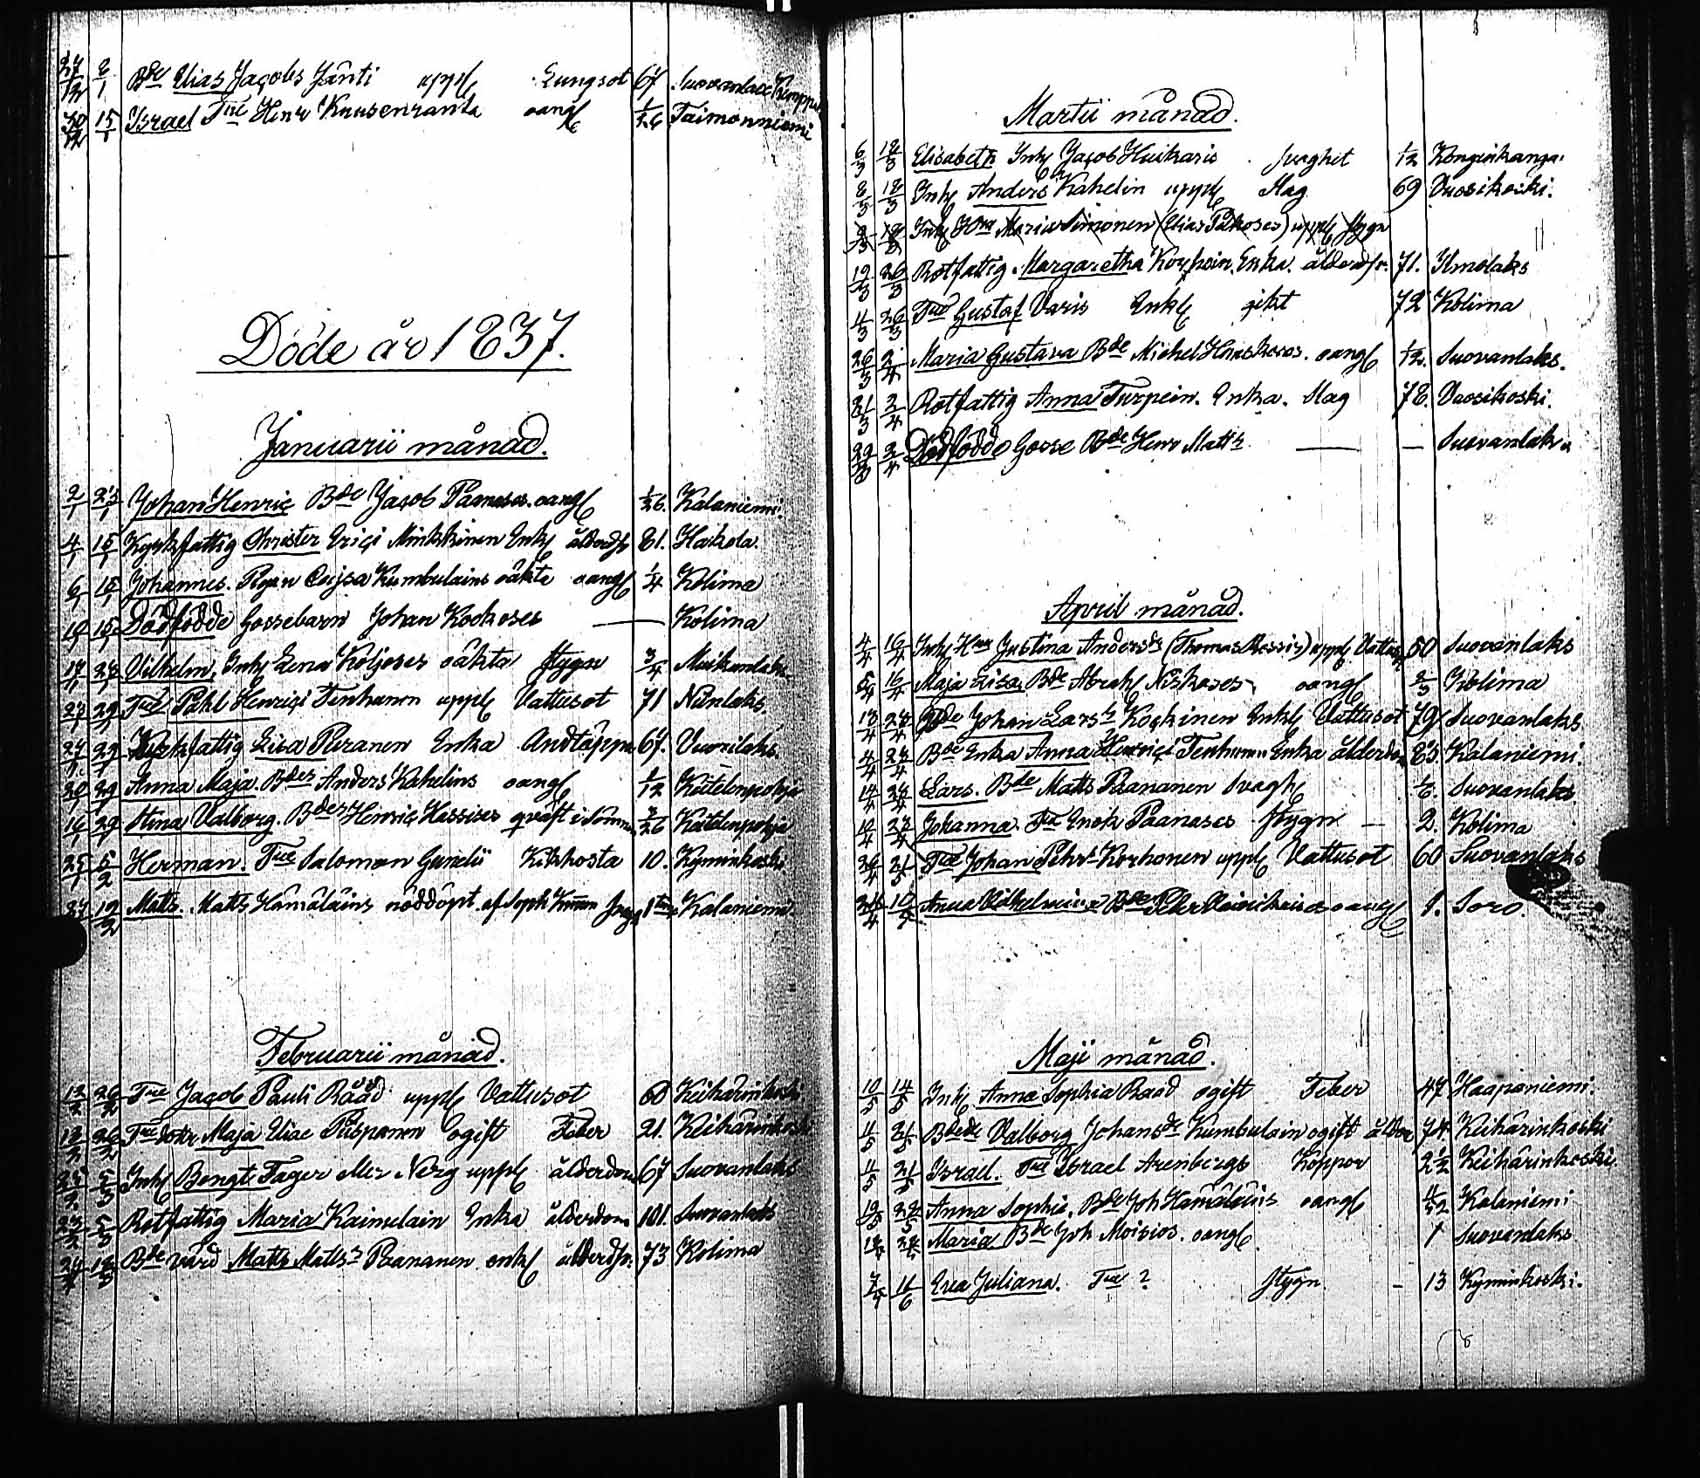 27/12 8/1 Bde Elias Jacobs Jänti uppl Lungsot 67 Suovanlax
30/12 15/1 Israel Tue Henr Knusenranta oangl 1/26 Taimonniemi
Döde år 1837.
Januarii månad.
2/1 Johan Henric Bde Jacob Paanases. oangl 1/26. Kalaniemi.
4/1 15/1 Kyrkfattig Christer Erici Minkkinen Enkl ålderdfr 81. Hakola.
6/1 15/1 Johannes. Pigan Caijsa Kumbulains oäkta oangl 1/4 Kolima
15/1 Dödfödde Gossebarn Johan Kockoses — Kolima
Vilhelm, Inh Lena Koljoses oäkta Stygn 3/4 Muikunlaks
Tue Påhl Henrici Tenhunen uppl Vattusot 71 Ninlaks.
29/1 Kyrkfattig Lisa Puranen Enka Andtäppa 67. Vuorilaks.
29/1 Anna Maja. Bdes Anders Kahelins oangl 1/12 Keitelenpohja
16/1 29/1 Stina Valborg. Bdes Henric Hassises qväft i sömn 3/26 Keitelenpohja
25/1 5/2 Herman. Tue Salomon Gundii Kikhosta 10. Kyminkoski
27/1 12/2 Matts. Matts Hämäläins nöddöpt. af Soph Kalaniemi
Februarii månad.
12/2 26/2 Tue Jacob Pauli Rååd uppl Vattusot 60 Keihärinkoski
26/2 Tuedotr Maja Eliae Puspanen ogift Feber 21. Keihärinkoski
5/3 Inh Bengt Fager uppl ålderdom 67 Suovanlaks
5/3 Rotfattig Maria Kainulain Enka ålderdom 101. Suovanlaks
Bde vård Matts Matts Paananen enkl ålderdfr. 73 Kolima
Martii månad.
6/3 12/3 Elisabeth Inh Jacob Huikaris Svaghet 1/12 Konginkangas
8/3 12/3 Inh Anders Kahelin uppl Slag 69 Vuosikoski.
Inh Hru Maria Simonen (Elias Påkoses) uppl Stygn
12/3 26/3 Rotfattig. Margaretha Korpein. Enka. ålderdfr. 71. Ilmolaks
11/3 26/3 Tue Gustaf Varis Enkl gikt 72 Kolima
26/3 2/4 Maria Gustava Bde Michel Hinskoses. oangl 1/12. Suovanlaks.
31/3 2/4 Rotfattig Anna Turpein. Enka. Slag 78. Vuosikoski.
29/3 2/4 Dödfödde Gosse Bde Henr Matts — — Suovanlaks
April månad.
4/4 16/4 Inh Hru Justina Andersdr (Thomas Massis) uppl Vattusot 50 Suovanlaks
5/4 16/4 Maja Lisa. Bde Abrah Niskoses oangl 2/3 Kolima
13/4 23/4 Bde Johan Larss Kockinen Enkl Vattusot 79 Suovanlaks
4/4 23/4 Bde Enka Anna Henrici Tenhunen Enka ålderdom 83. Kalaniemi.
14/4 23/4 Lars. Bde Matts Paananen Svagh 1/6. Suovanlaks
10/4 23/4 Johanna. Tue Enok Paanases Stygn — 2. Kolima
Tue Johan Pehrs Korhonen uppl Vattusot 60 Suovanlaks
Anna Vilhelmina Bde Pehr oangl 1. Soro.
Maji månad.
10/5 14/5 Inh Anna Sophia Raad ogift Feber 47 Haapaniemi.
11/5 21/5 Bdedr Valborg Johansdr Kumbulain ogift ålder 74. Keihärinkoski
11/5 21/5 Israel. Tue Israel Arenbergs Koppor 2 1/2 Keihärinkoski
19/5 Anna Sophia. Bde Joh Hämäläins oangl 11/52 Kalaniemi
Maria Bde Joh Moisios. oangl 1 Suovanlaks
11/6 Eva Juliana. Tue ? Stygn — 13 Kyminkoski.